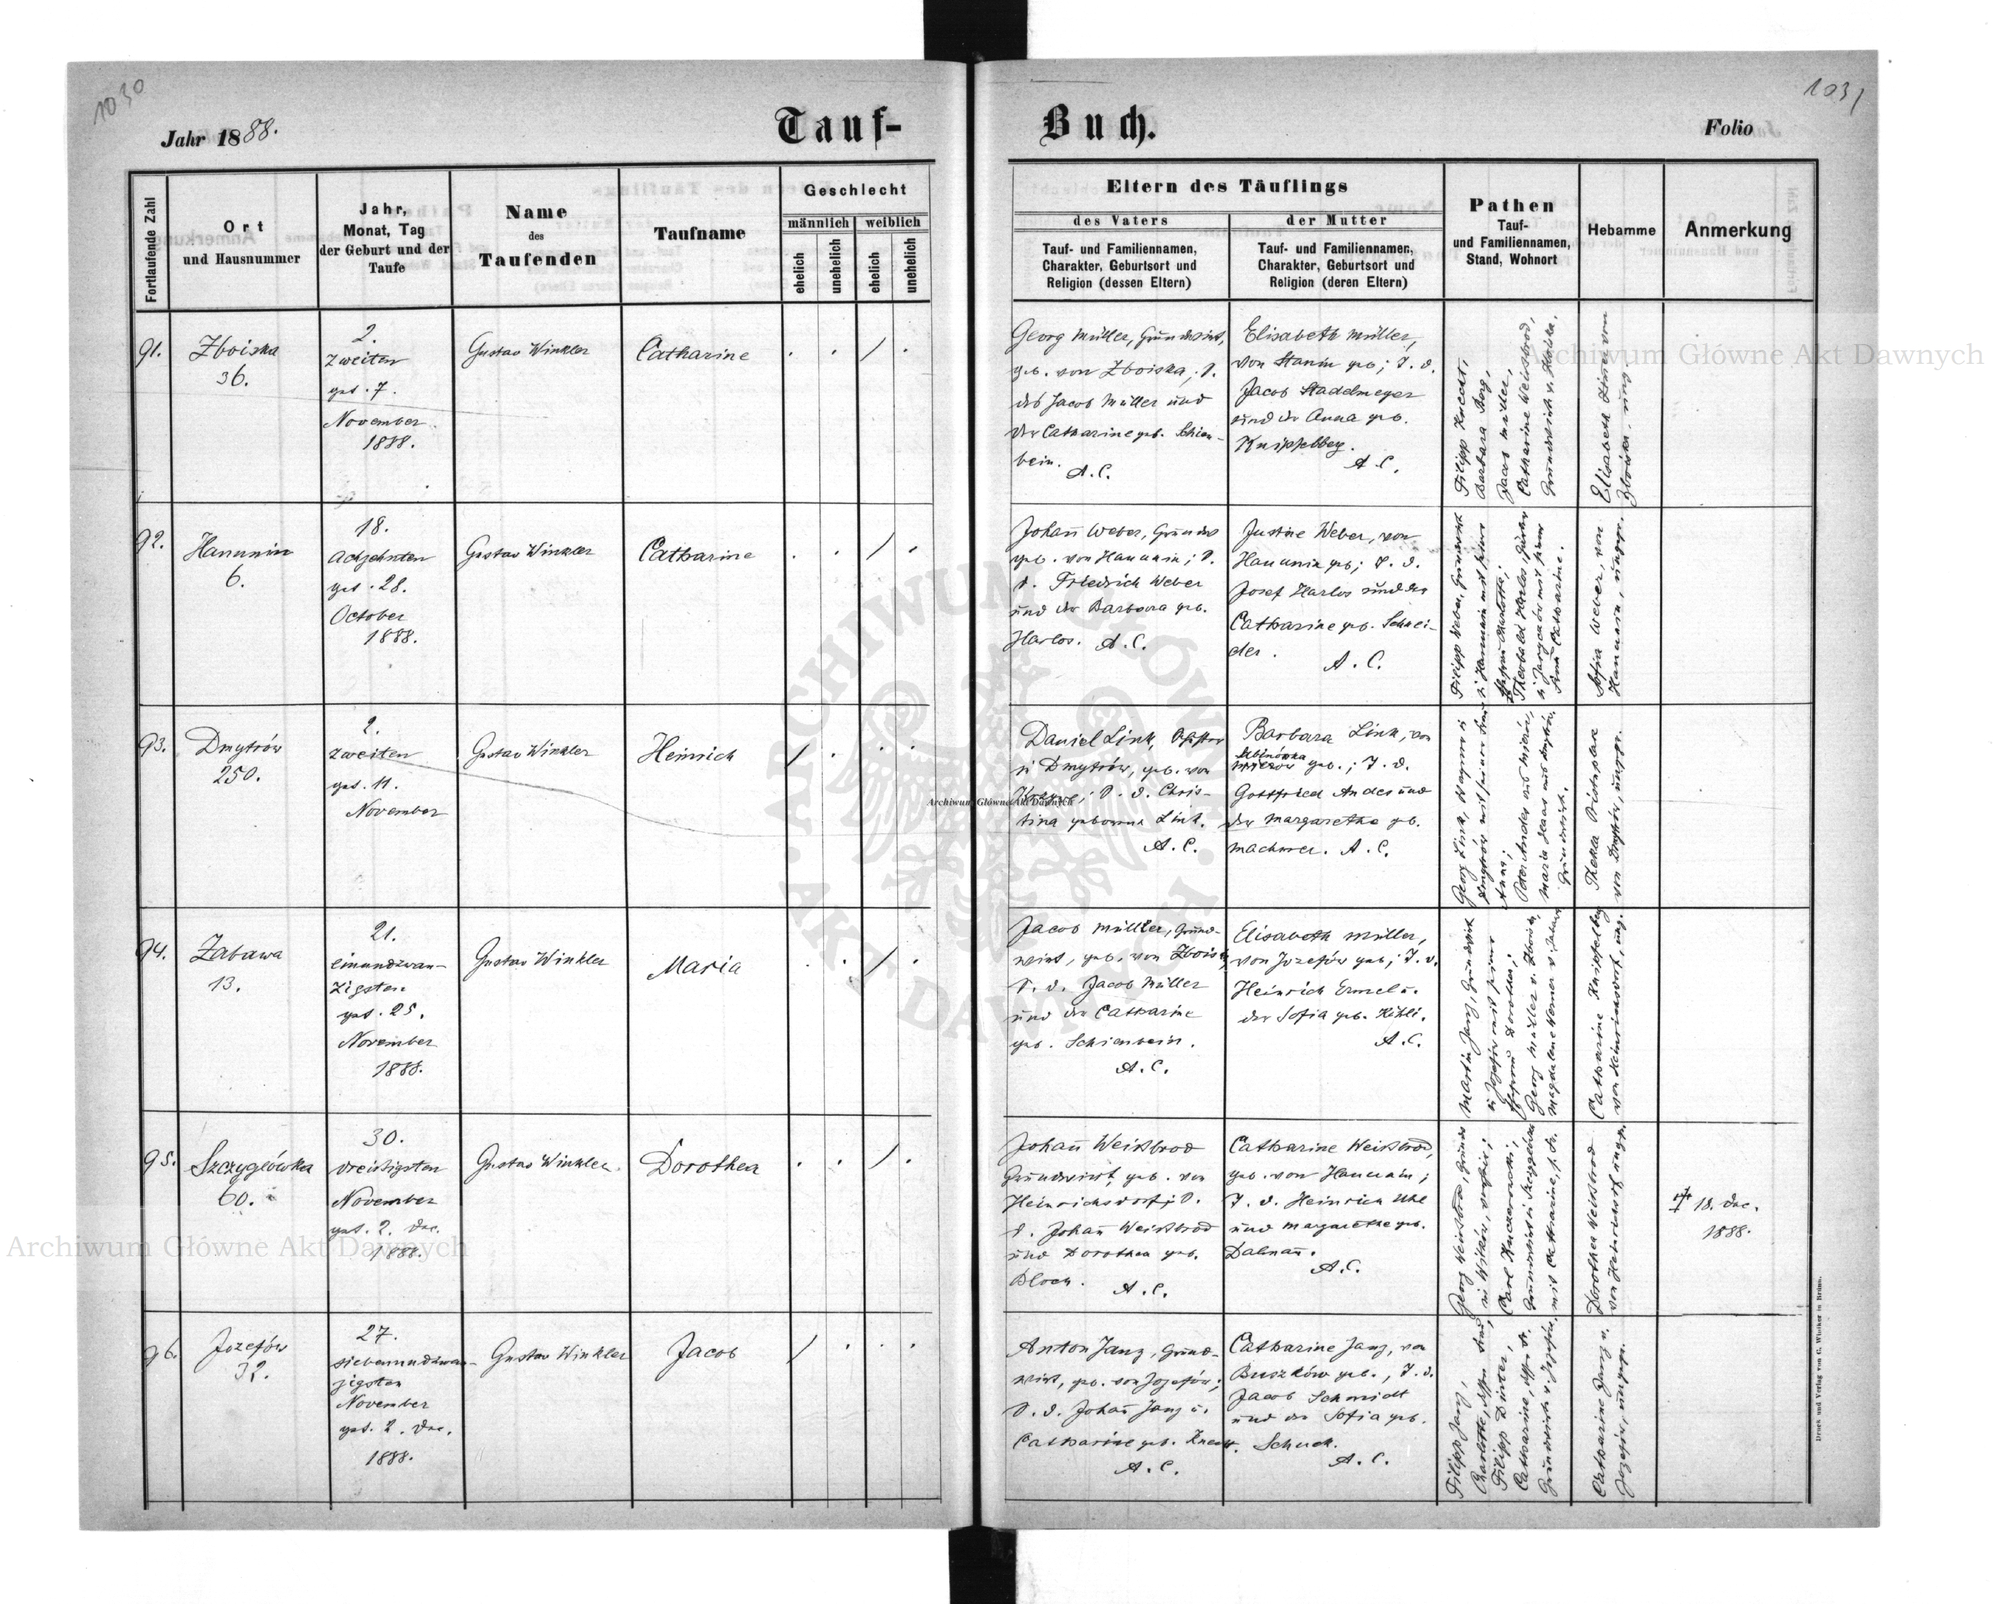 1030
1031
Jahr 1888.
Tauf-
Buch.
Folio
Fortlaufende Zahl
Ort
und Hausnummer
Jahr,
Monat, Tag
der Geburt und der
Taufe
Name
des
Taufenden
Taufname
Geschlecht
männlich
weiblich
ehelich
unehelich
ehelich
unehelich
Eltern des Täuflings
des Vaters
Tauf- und Familiennamen,
Charakter, Geburtsort und
Religion (dessen Eltern)
der Mutter
Tauf- und Familiennamen,
Charakter, Geburtsort und
Religion (deren Eltern)
Pathen
Tauf-
und Familiennamen,
Stand, Wohnort
Hebamme
Anmerkung
91.
Zboiska
36.
2.
zweiten
get. 7.
November
1888.
Gustav Winkler
Catharine
Georg Müller, Grundwirt,
geb. von Zboiska; S.
des Jacob Müller und
der Catharine geb. Schien-
bein.
A.C.
Elisabeth Müller,
von Stanin geb; T. d.
Jacob Stadelmeyer
und der Anna geb.
Knipfelberg.
A.C.
Filipp Knecht,
Barbara Berg,
Jacob Müller,
Catharine Weisbrod,
Elisabeth
92.
Hanunin
6.
18.
Achzehnten
get. 28.
October
1888.
Gustav Winkler
Catharine
Johan̄ Weber, Grundw
geb. von Hanunin; S.
d. Friedrich Weber
und der Barbara geb.
Harlos. A.C.
Justine Weber, von
Hanunin geb; T. d.
Josef Harlos und der
Catharine geb. Schnei-
der.
A.C.
Filipp Weber, Grundwirt
in Hanunin mit seiner
Theobald Harlos
Catharine.
Sofia Weber, von
Hanunin, ungepr.
93.
Dmytrów
250.
2.
zweiten
get. 11.
November
Gustav Winkler
Heinrich
Daniel Link,
in Dmytrów, geb. von
S. d. Chris-
tina geborene Link.
A.C.
Barbara Link, von
Sabinówka
geb.; T. d.
Gottfried Andes und
der Margaretha geb.
Machmer. A.C.
Georg Link, Wagner in
Dmytrów mit seiner Frau
Anna;
Peter Andes aus
Maria
Thekla
von Dmytrów, ungepr.
94.
Zabawa
13.
21.
einundzwan-
zigsten
get. 25.
November
1888.
Gustav Winkler
Maria
Jacob Müller, Grund-
wirt, geb. von Zboiska,
S. d. Jacob Müller
und der Catharine
geb. Schienbein.
A.C.
Elisabeth Müller,
von Jozefów geb; T. d.
Heinrich Ermel u.
der Sofia geb. Köhli.
A.C.
Martin Janz, Grundwirt
in Jozefów mit seiner
Dorothea;
Georg Müller v. Zboiska,
Magdalene Werner v.
Catharine Knipfelberg
von Heinrichsdorf, ung.
95.
Szczyglówka
60.
30.
dreisigsten
November
get. 2. Dec.
1888.
Gustav Winkler
Dorothea
Johan̄ Weisbrod
Grundwirt, geb. von
Heinrichsdorf; S.
d. Johan̄ Weisbrod
und Dorothea geb.
Bloch.
A.C.
Catharine Weisbrod,
geb. von Hanunin;
T. d. Heinrich Uhl
und Margarethe geb.
Dalman̄.
A.C.
Georg Weisbrod, Grundw
in Witków,
Carl
Grundwirt in Szczyglówka
mit Catharine, s. Fr.
Dorothea Weisbrod
von Heinrichsdorf, ungepr.
† 18. Dec.
1888.
96.
Jozefów
32.
27.
siebenundzwan-
zigsten
November
get. 2. Dec.
1888.
Gustav Winkler
Jacob
Anton Janz, Grund-
wirt, geb. von Jozefów;
S. d. Johan̄ Janz u.
Catharine geb. Knecht.
A.C.
Catharine Janz, von
Buszków geb., T. d.
Jacob Schmidt
und der Sofia geb.
Schuck.
A.C.
Filipp Janz,
Charlotte, dessen Frau,
Filipp Dinter,
Catharine, dess. Fr.
Grundwirth v. Jozefów.
Catharine Janz v.
Jozefów, ungepr.
Druck und Verlag von C. Winiker in Brünn.
Archiwum Główne Akt Dawnych
Archiwum Główne Akt Dawnych
Archiwum Główne Akt Dawnych
ARCHIWUM GŁÓWNE AKT DAWNYCH